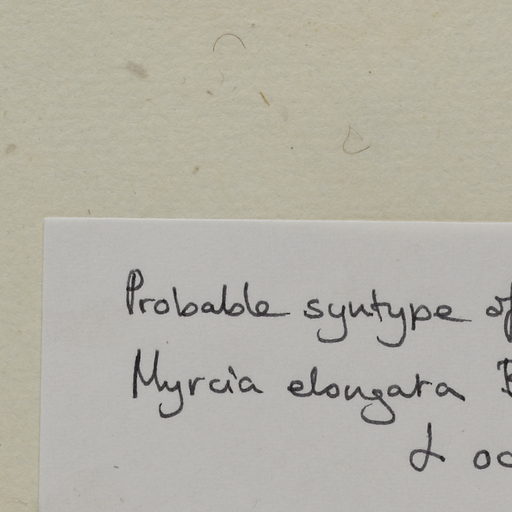 Probable syntype of
Myrcia elongata